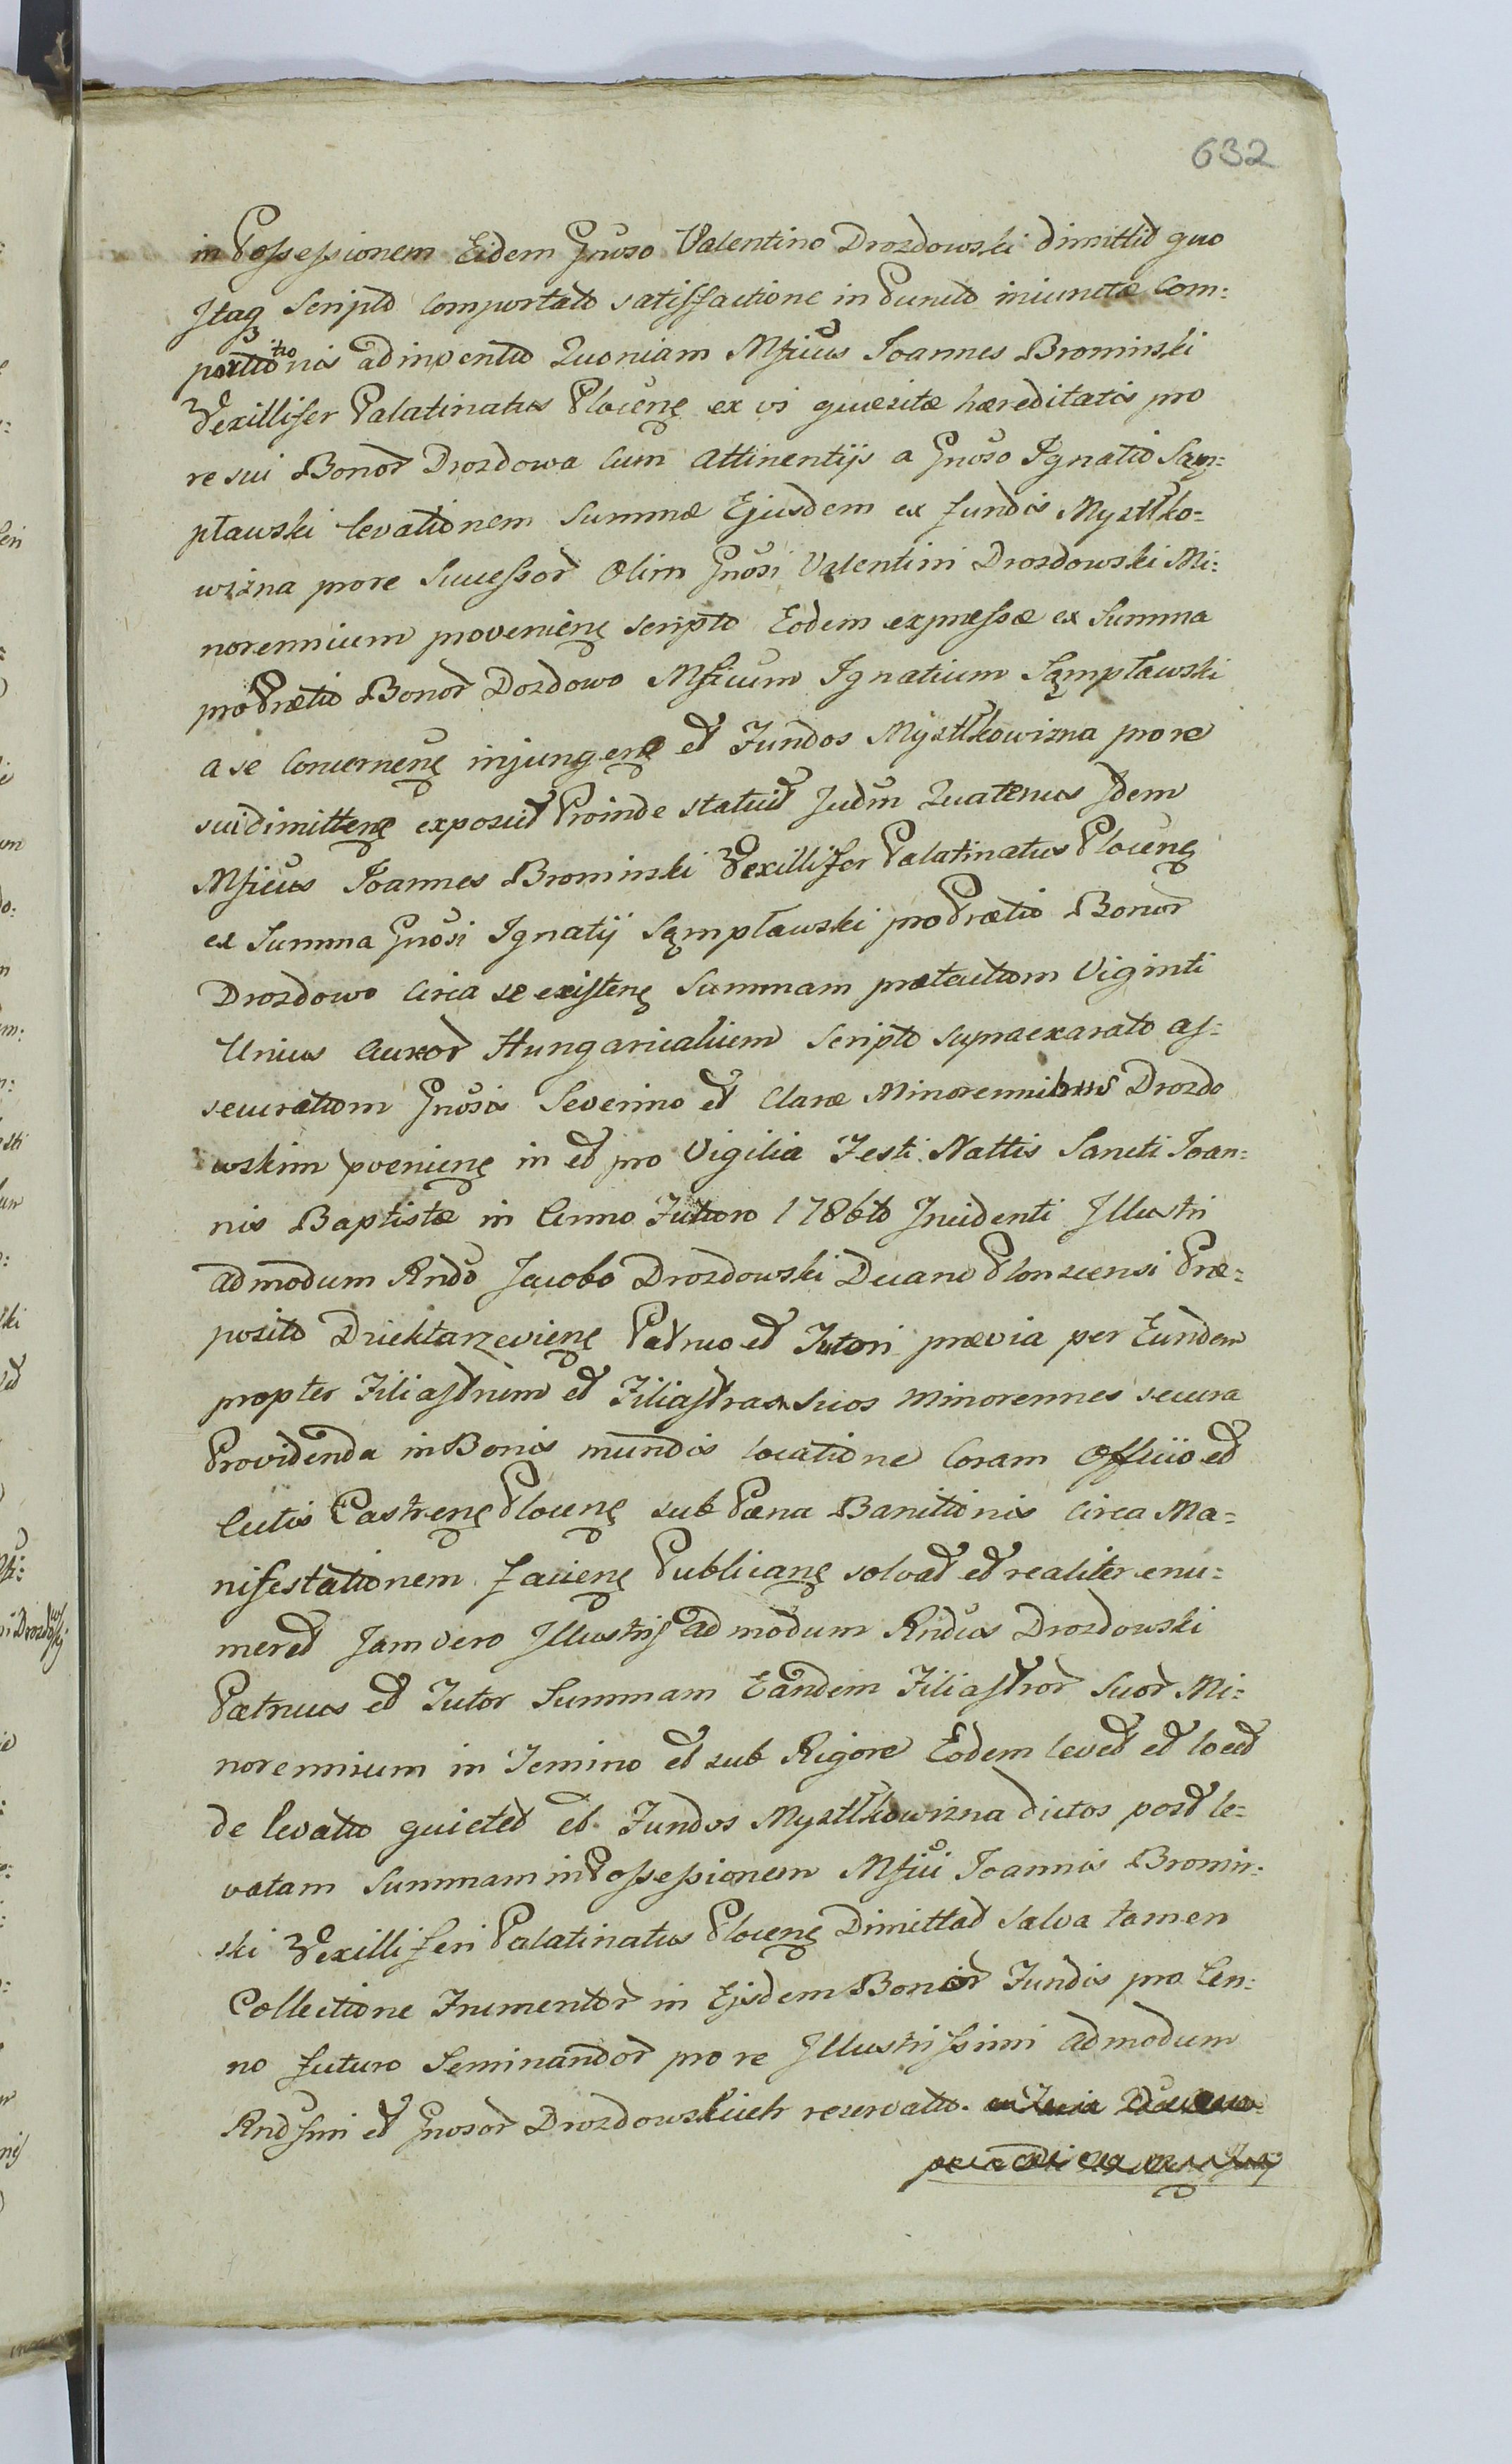 632
in Possessionem Eidem Gnoso Valentino Drozdowski dimittit quo
Itaq Scripto comportato satisfactione in Puncto iniunctæ Com:
portationis adinventa Quoniam Mficus Joannes Brominski
Vexillifer Palatinatus Plocen ex vi quæsitæ hæreditatis pro
re sui Bonor Drozdowa Cum Attinentijs a Gnoso Ignatio Sąm:
pławski levationem Summæ Ejusdem ex fundis Mysttko:
wizna pore Successor Olim Gnosi Valentini Drozdowski Mi:
norennium provenien scripto Eodem expressæ ex Summa
pro Prætio Bonor Dozdowo Mficum Ignatium Sąmpławski
a se Concernen injungen et Fundos Mysttkowizna pore
sui dimitten exposuit Proinde statuit Judm Quatenus Idem
Mficus Joannes Brominski Vexillifer Palatinatus Plocen
ex Summa Gnosi Ignatij Sąmpławski pro Prætio Bonor
Drozdowo Circa se existen Summam prætactam Viginti
Unius Auror Hungaricalium Scripto supraexarato as:
securatam Gnosis Severino et Claræ Minorennibus Drozdo
wskim pvenien in et pro Vigilia Festi Nattis Sancti Joan:
nis Baptistæ in Anno Futuro 1786to Incidenti Illustri
admodum Rndo Jacobo Drozdowski Decano Plonscensi Præ:
posito Dziektarzevien Patruo et Tutori prævia per Eundem
propter Filiastrum et Filiastram Suos Minorennes secura
Providenda in Bonis mundis locatione Coram Officio et
Actis Castren Plocen sub Pæna Banitionis Circa Ma:
nifestationem facien Publican solvat et realiter enu:
meret Jam vero Illustris admodum Rndus Drozdowski
Patruus et Tutor Summam Eandem Filiastror Suor Mi:
norennium in Temino et sub Rigore Eodem levet et locet
de levata quietet et Fundos Mysttkowizna dictos post le:
vatam Summam in Possessionem Mfici Joannis Bromin:
ski Vexilliferi Palatinatus Plocen Dimittat salva tamen
Collectione Frumentor in Ejsdem Bonor Fundis pro An:
no futuro Seminandor pro re Illustrissimi admodum
Rndssmi et Gnosor Drozdowskich reservatta.